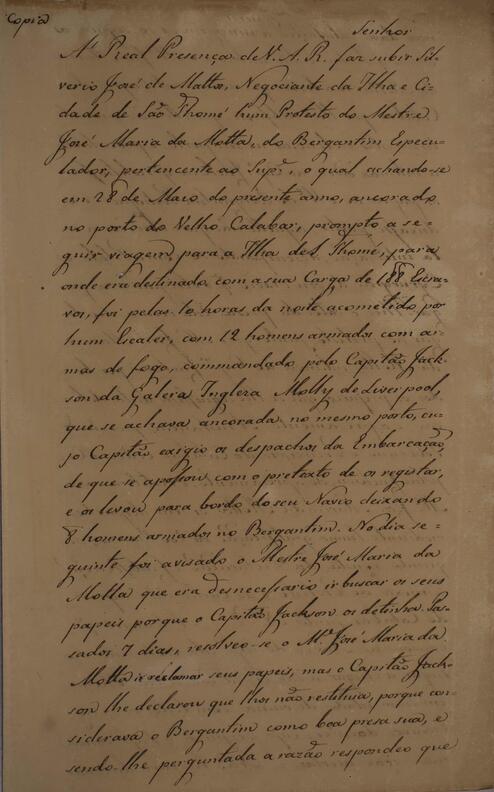 Copia
Senhor
A' Real Presença de V. A. R. faz subir Sil-
verio José de Mattos, Negociante da Ilha e Ci-
dade de São Thomé hum Protesto do Mestre
José Maria da Motta, do Bergantim Especu-
lador, pertencente ao Supe., o qual achando-se
em 28 de Maio do presente anno, ancorado
no porto do Velho Calabar, prompto a se-
guir viagem para a Ilha de S. Thomé, para
onde era destinado com a sua Carga de 188 Escra-
vos, foi pelas 10 horas da noite acometido por
hum Escaler, com 12 homens armados com ar-
mas de fogo, commandado pelo Capitão Jack-
son da Galera Ingleza Molly de Liverpool,
que se achava ancorada no mesmo porto, cu-
jo Capitão exigio os despachos da Embarcação,
de que se apossou com o pretexto de os registar,
e os levou para bordo do seu Navio deixando
8 homens armados no Bergantim. No dia se-
guinte foi avisado o Mestre José Maria da
Motta que era desnecessario ir buscar os seus
papeis porque o Capitão Jackson os detinha. Pas-
sados 7 dias, resolveo-se o Me. José Maria da
Motta ir reclamar seus papeis, mas o Capitão Jack-
son lhe declarou que lhos não restituia, porque con-
siderava o Bergantim como boa presa sua, e
sendo-lhe perguntada a razão respondeo que